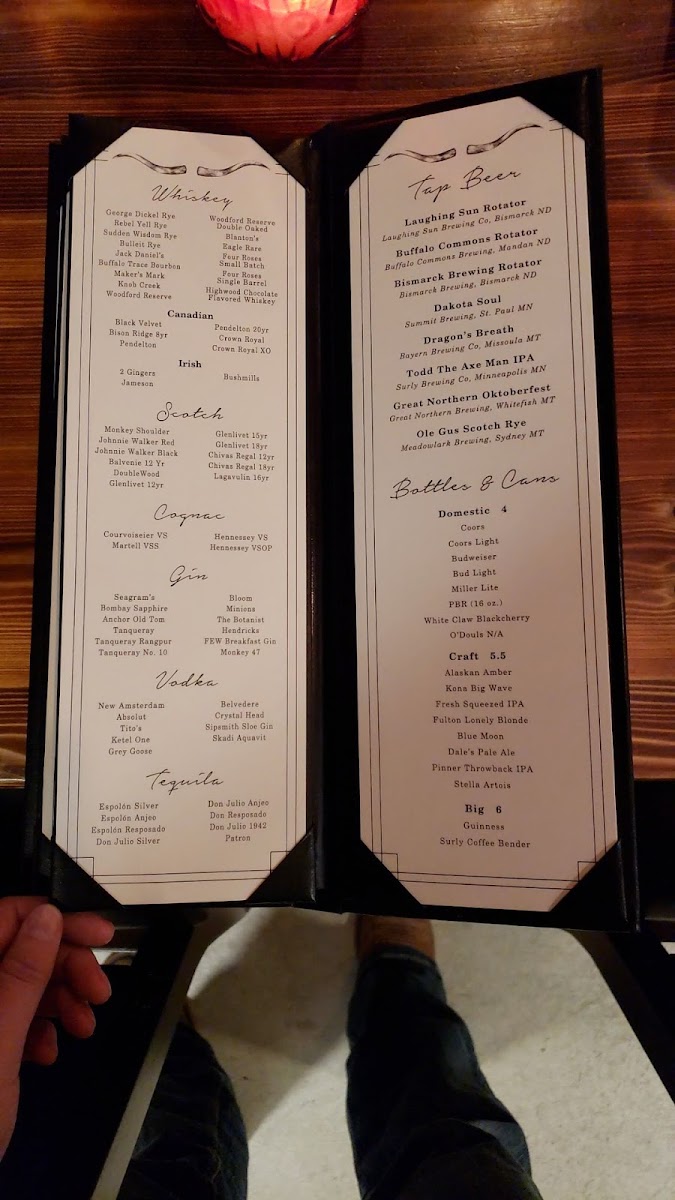 Whiskey
George Dickel Rye
Rebel Yell Rye
Sudden Wisdom Rye
Bulleit Rye
Jack Daniel's
Buffalo Trace Bourbon
Maker's Mark
Knob Creek
Woodford Reserve
Woodford Reserve
Double Oaked
Blanton's
Eagle Rare
Four Roses
Small Batch
Four Roses
Single Barrel
Highwood Chocolate
Flavored Whiskey
Canadian
Black Velvet
Bison Ridge 8yr
Pendelton
Pendelton 20yr
Crown Royal
Crown Royal XO
Irish
2 Gingers
Jameson
Bushmills
Scotch
Monkey Shoulder
Johnnie Walker Red
Johnnie Walker Black
Balvenie 12 Yr
DoubleWood
Glenlivet 12yr
Glenlivet 15yr
Glenlivet 18yr
Chivas Regal 12yr
Chivas Regal 18yr
Lagavulin 16yr
Cognac
Courvoiseier VS
Martell VSS
Hennessey VS
Hennessey VSOP
Gin
Seagram's
Bombay Sapphire
Anchor Old Tom
Tanqueray
Tanqueray Rangpur
Tanqueray No. 10
Bloom
Minions
The Botanist
Hendricks
FEW Breakfast Gin
Monkey 47
Vodka
New Amsterdam
Absolut
Tito's
Ketel One
Grey Goose
Belvedere
Crystal Head
Sipsmith Sloe Gin
Skadi Aquavit
Tequila
Espolón Silver
Espolón Anjeo
Espolón Resposado
Don Julio Silver
Don Julio Anjeo
Don Resposado
Don Julio 1942
Patron
Tap Beer
Laughing Sun Rotator
Laughing Sun Brewing Co, Bismarck ND
Buffalo Commons Rotator
Buffalo Commons Brewing, Mandan ND
Bismarck Brewing Rotator
Bismarck Brewing, Bismarck ND
Dakota Soul
Summit Brewing, St. Paul MN
Dragon's Breath
Bayern Brewing Co, Missoula MT
Todd The Axe Man IPA
Surly Brewing Co, Minneapolis MN
Great Northern Oktoberfest
Great Northern Brewing, Whitefish MT
Ole Gus Scotch Rye
Meadowlark Brewing, Sydney MT
Bottles & Cans
Domestic 4
Coors
Coors Light
Budweiser
Bud Light
Miller Lite
PBR (16 oz.)
White Claw Blackcherry
O'Douls N/A
Craft 5.5
Alaskan Amber
Kona Big Wave
Fresh Squeezed IPA
Fulton Lonely Blonde
Blue Moon
Dale's Pale Ale
Pinner Throwback IPA
Stella Artois
Big 6
Guinness
Surly Coffee Bender